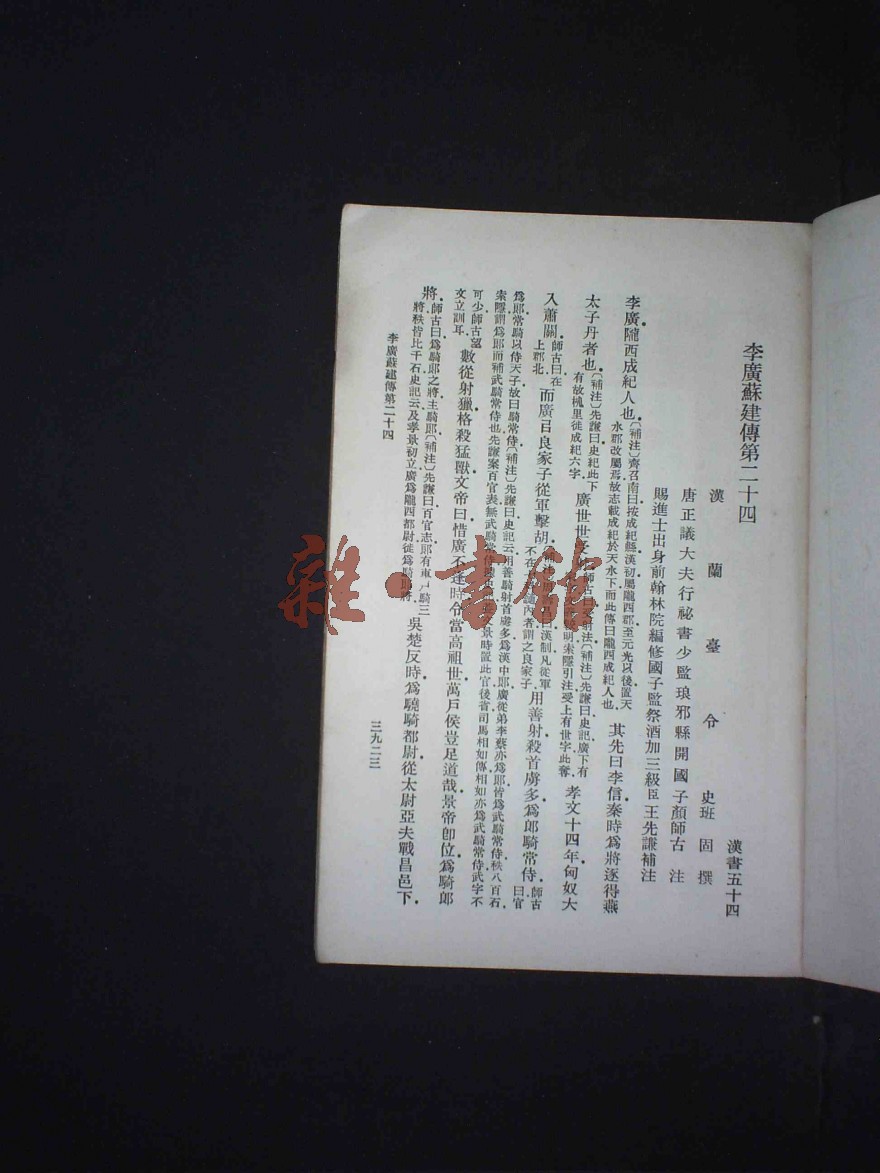 李廣蘇建傳第二十四
漢書五十四
漢蘭臺令史班固撰
唐正議大夫行祕書少監琅邪縣開國子顏師古注
賜進士出身前翰林院編修國子監祭酒加三級臣王先謙補注
李廣隴西成紀人也〔補注〕齊召南曰按成紀縣漢初屬隴西郡至元光以後置天水郡改屬焉故志載成紀於天水下而此傳曰隴西成紀人也其先曰李信秦時爲將逐得燕
太子丹者也〔補注〕先謙曰史記此下有故槐里徙成紀六字廣世世受射法〔補注〕先謙曰史記廣下有明索隱引注受上有世字此奪孝文十四年匈奴大
入蕭關師古曰在上郡北而廣㠯良家子從軍擊胡曰漢制凡從軍不在內者謂之良家子用善射殺首虜多爲郎騎常侍師古曰官
爲郎常騎以侍天子故曰騎常侍〔補注〕先謙曰史記云用善騎射首虜多爲漢中郎廣從弟李蔡亦爲郎皆爲武騎常侍秩八百石
索隱謂爲郎而補武騎常侍也先謙案百官表無武騎常侍景時置此官後省司馬相如傳相如亦爲武騎常侍武字不
可少師古望文立訓耳數從射獵格殺猛獸文帝曰惜廣不逢時令當高祖世萬戶侯豈足道哉景帝卽位爲騎郎
將師古曰爲騎郎之將主騎郎〔補注〕先謙曰百官志郎有車戶騎三將秩皆比千石史記云及孝景初立廣爲隴西都尉徙爲騎郎將吳楚反時爲驍騎都尉從太尉亞夫戰昌邑下
李廣蘇建傳第二十四
三九二三
雜·書館